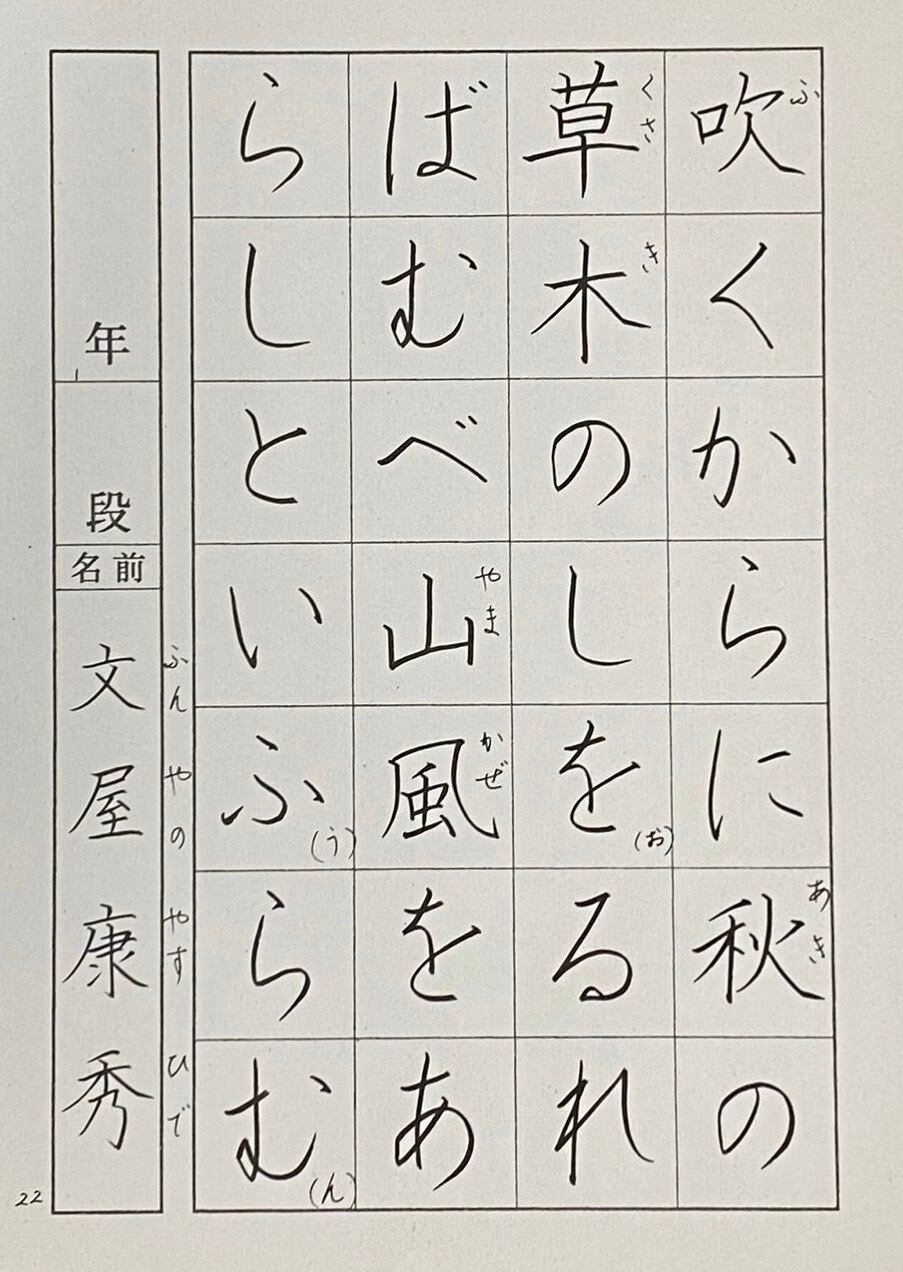 吹くからに秋の
草木のしをるれ
ばむべ山風をあ
らしといふらむ
ふ
あき
くさ
き
(お)
やま
かぜ
(う)
(ん)
年
段
名前
文屋康秀
ふんやのやすひで
22